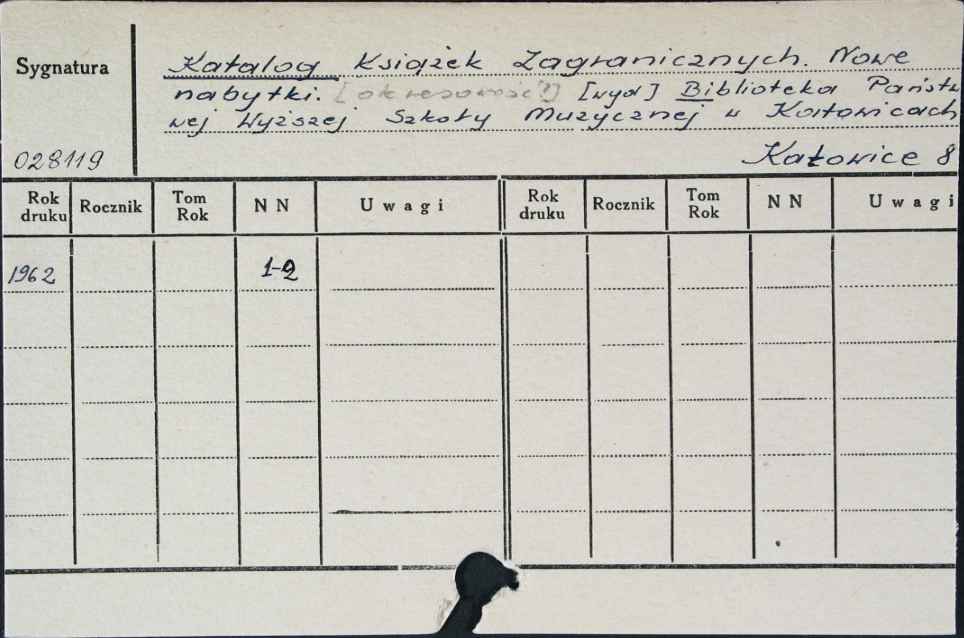 Sygnatura
Katalog Książek Zagranicznych. Nowe
nabytki. [okresowość?] [wyd] Biblioteka Państw
wej Wyższej Szkoły Muzycznej w Katowicach
028119
Katowice 8
Rok druku Rocznik Tom Rok NN Uwagi Rok druku Rocznik Tom Rok NN Uwagi
1962 1-2